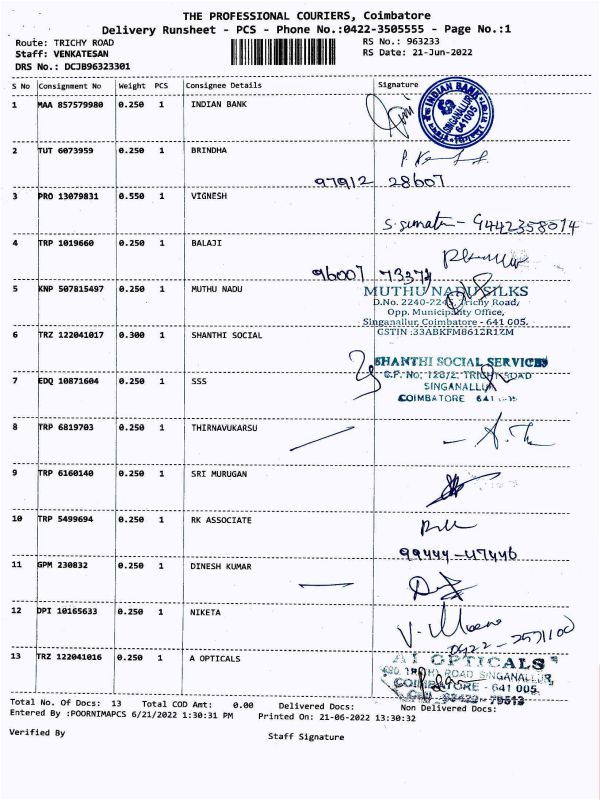 THE PROFESSIONAL COURIERS, Coimbatore
Delivery Runsheet - PCS - Phone No.:0422-3505555 - Page No.:1
Route: TRICHY ROAD
RS No.: 963233
Staff: VENKATESAN
RS Date: 21-Jun-2022
DRS No.: DCJB96323301
S No Consignment No Weight PCS Consignee Details Signature
1 MAA 857579980 0.250 1 INDIAN BANK
INDIAN BANK
SINGANALLUR
641005
2 TUT 6073959 0.250 1 BRINDHA
97912 28607
3 PRO 13079831 0.550 1 VIGNESH
S. Sumatu - 9442358074
4 TRP 1019660 0.250 1 BALAJI
96007 73374
5 KNP 507815497 0.250 1 MUTHU NADU
MUTHU NADU SILKS
D.No. 2240-2245, Trichy Road,
Opp. Municipality Office,
Singanallur, Coimbatore - 641 005.
GSTIN :33ABKFM8612R1ZM
6 TRZ 122041017 0.300 1 SHANTHI SOCIAL
SHANTHI SOCIAL SERVICES
G.F. No. 128/2, TRICHY ROAD
SINGANALLUR
COIMBATORE
7 EDQ 10871604 0.250 1 SSS
8 TRP 6819703 0.250 1 THIRNAVUKARSU
9 TRP 6160140 0.250 1 SRI MURUGAN
10 TRP 5499694 0.250 1 RK ASSOCIATE
99444-47446
11 GPM 230832 0.250 1 DINESH KUMAR
12 DPI 10165633 0.250 1 NIKETA
0422-2571100
13 TRZ 122041016 0.250 1 A OPTICALS
A1 OPTICALS
TRICHY ROAD SINGANALLUR,
COIMBATORE - 641 005.
Total No. Of Docs: 13 Total COD Amt: 0.00 Delivered Docs: Non Delivered Docs:
Entered By :POORNIMAPCS 6/21/2022 1:30:31 PM Printed On: 21-06-2022 13:30:32
Verified By
Staff Signature